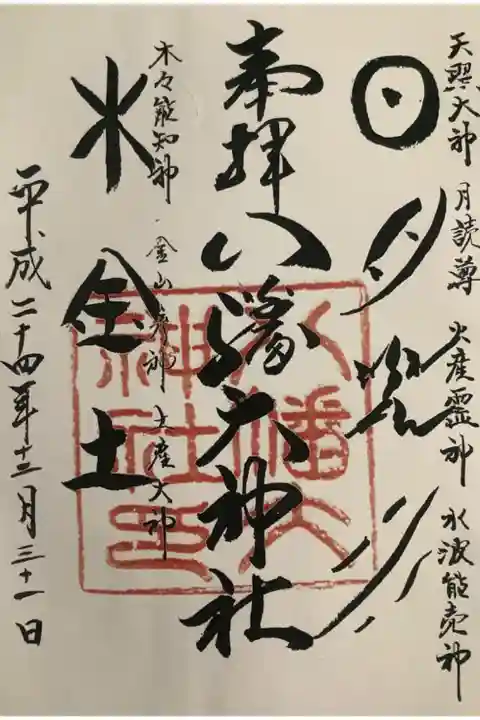 天照大神 月読尊 火産霊神 水波能売神
日月火水
奉拝八幡大神社
八幡大神社印
木々能知神・金山彦神 土産大神
木金土
平成二十四年十二月三十一日